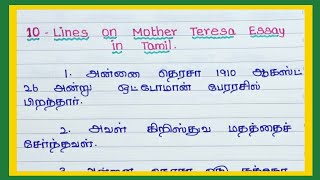 10 - Lines on Mother Teresa Essay
in Tamil.
1. அன்னை தெரசா 1910 ஆகஸ்ட்
26 அன்று ஒட்டோமான் பேரரசில்
பிறந்தார்.
2. அவள் கிறிஸ்துவ மதத்தைச்
சேர்ந்தவள்.
3. அன்னை தெரசா